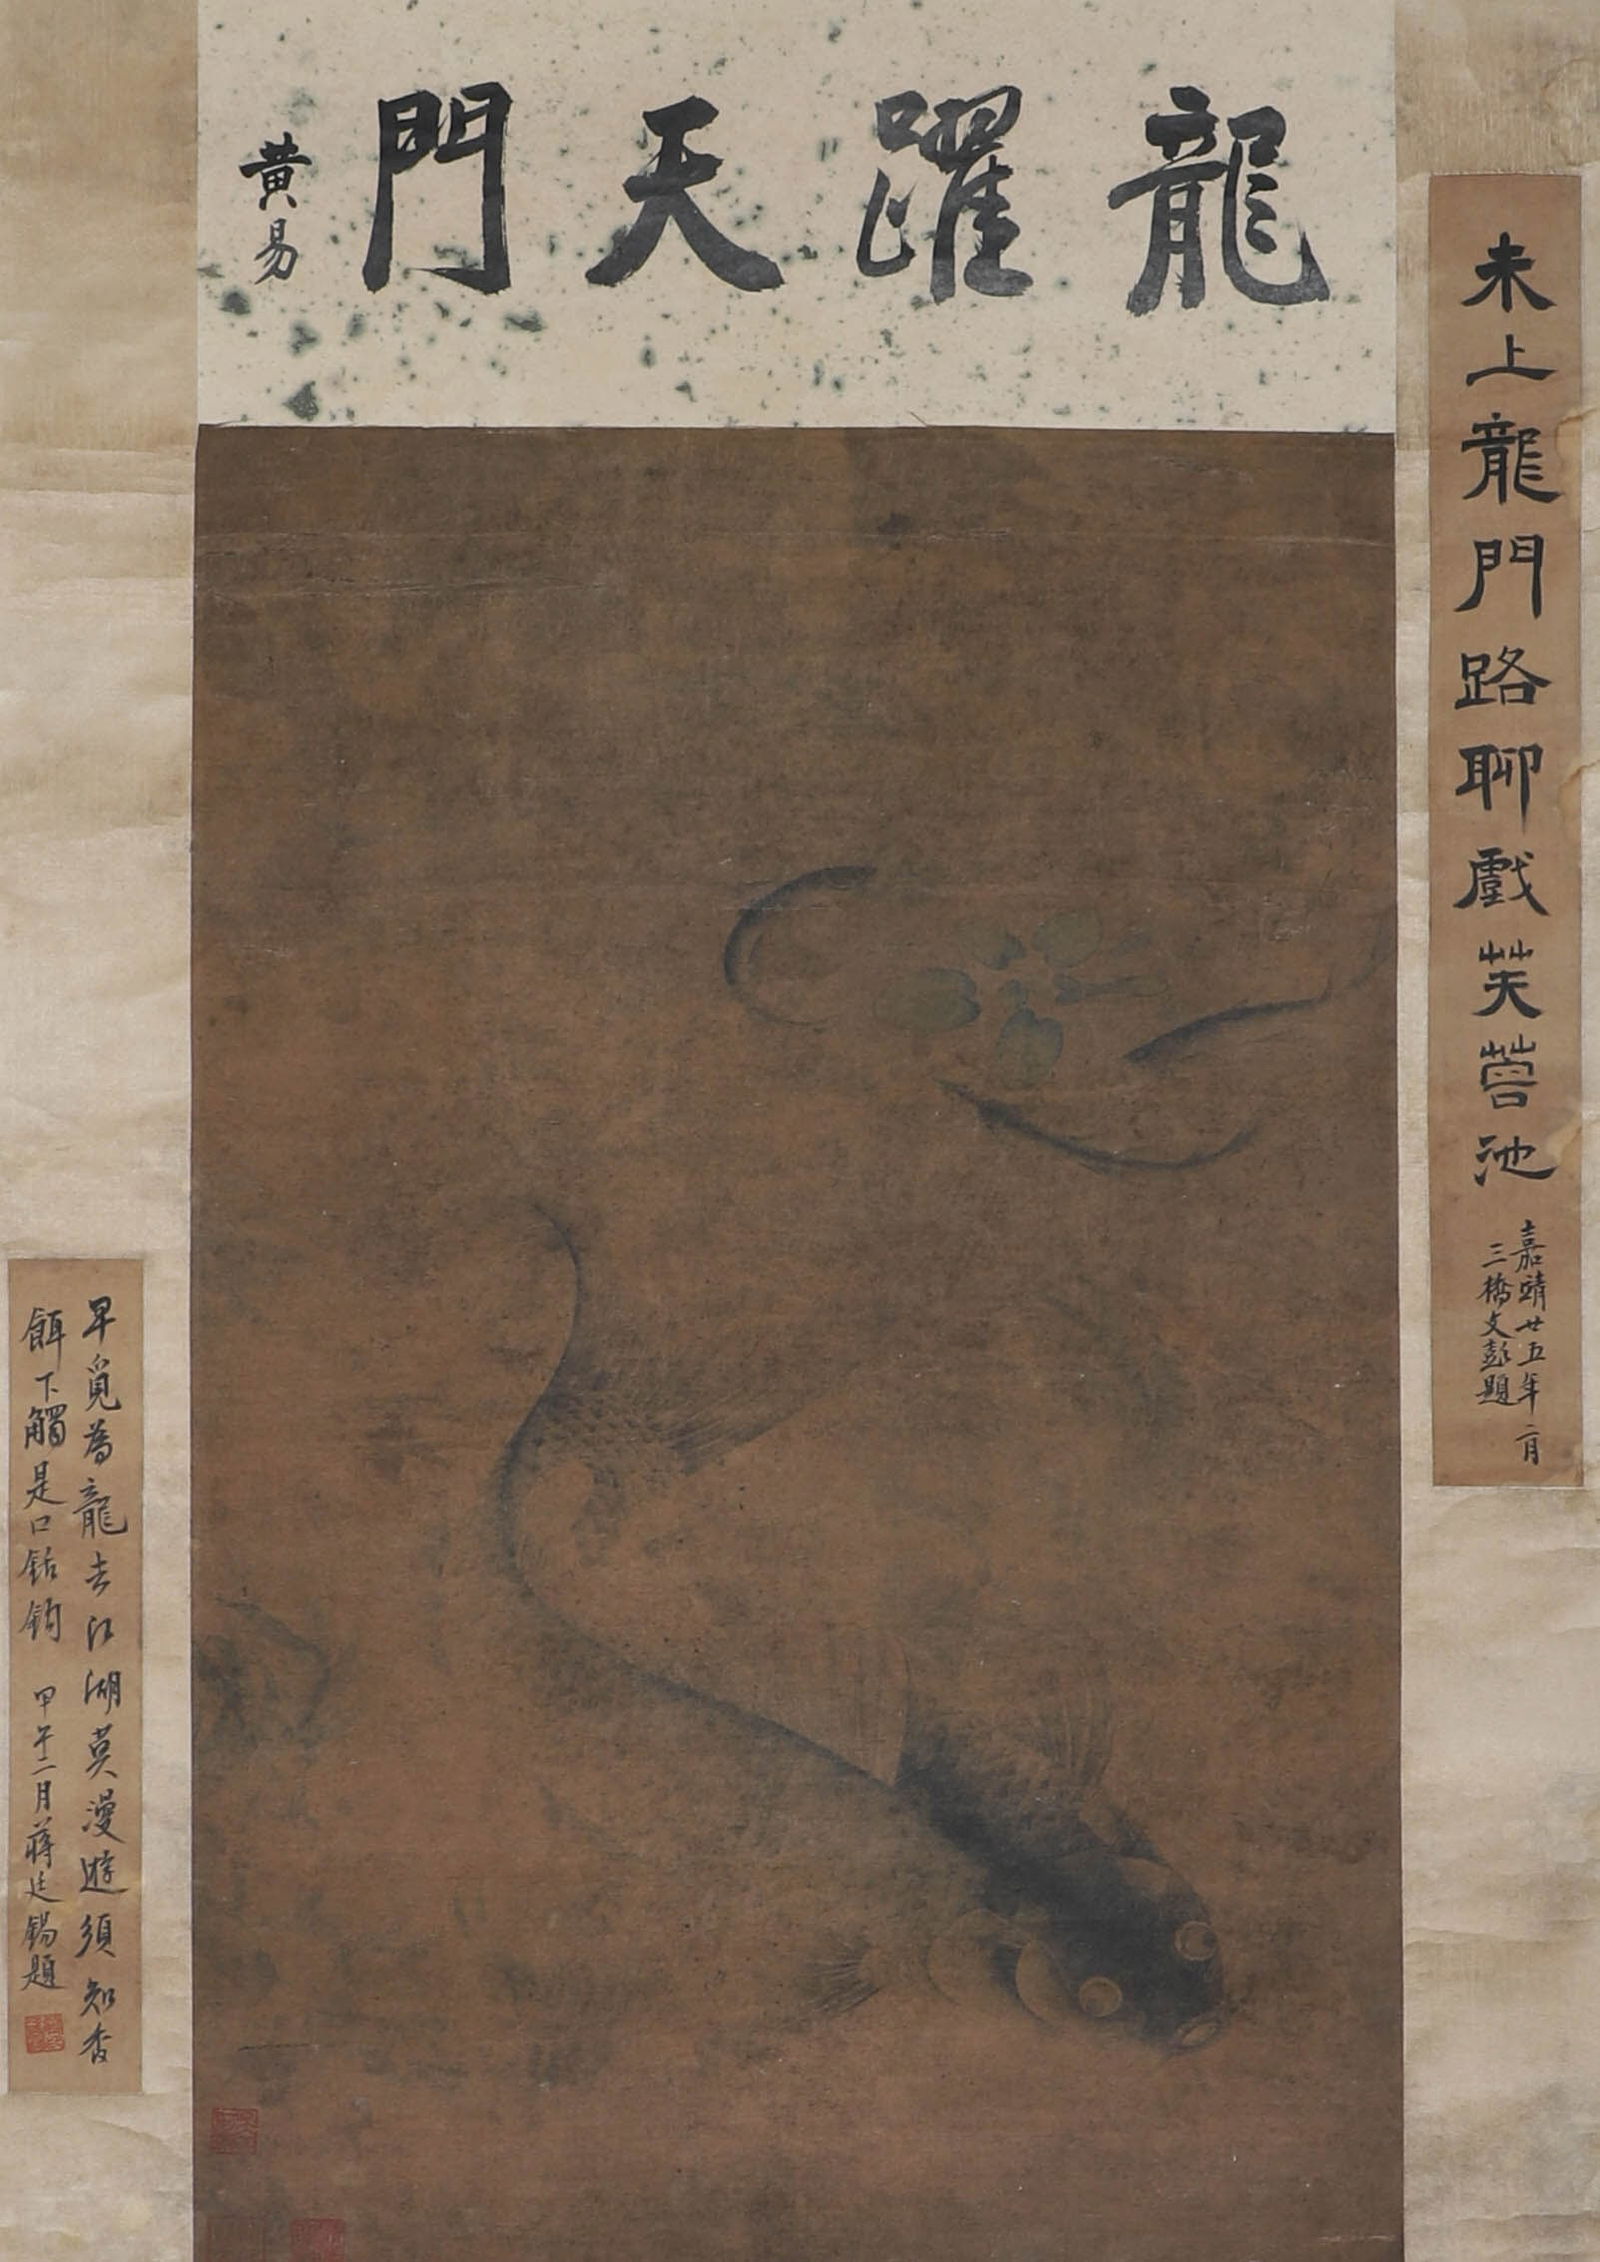 龍躍天門
黄易
未上龍門路聊戲芙蓉池
嘉靖廿五年二月
三橋文彭題
早覓為龍去江湖莫漫遊須知香
餌下觸是口銛鉤
甲午二月蔣廷錫題